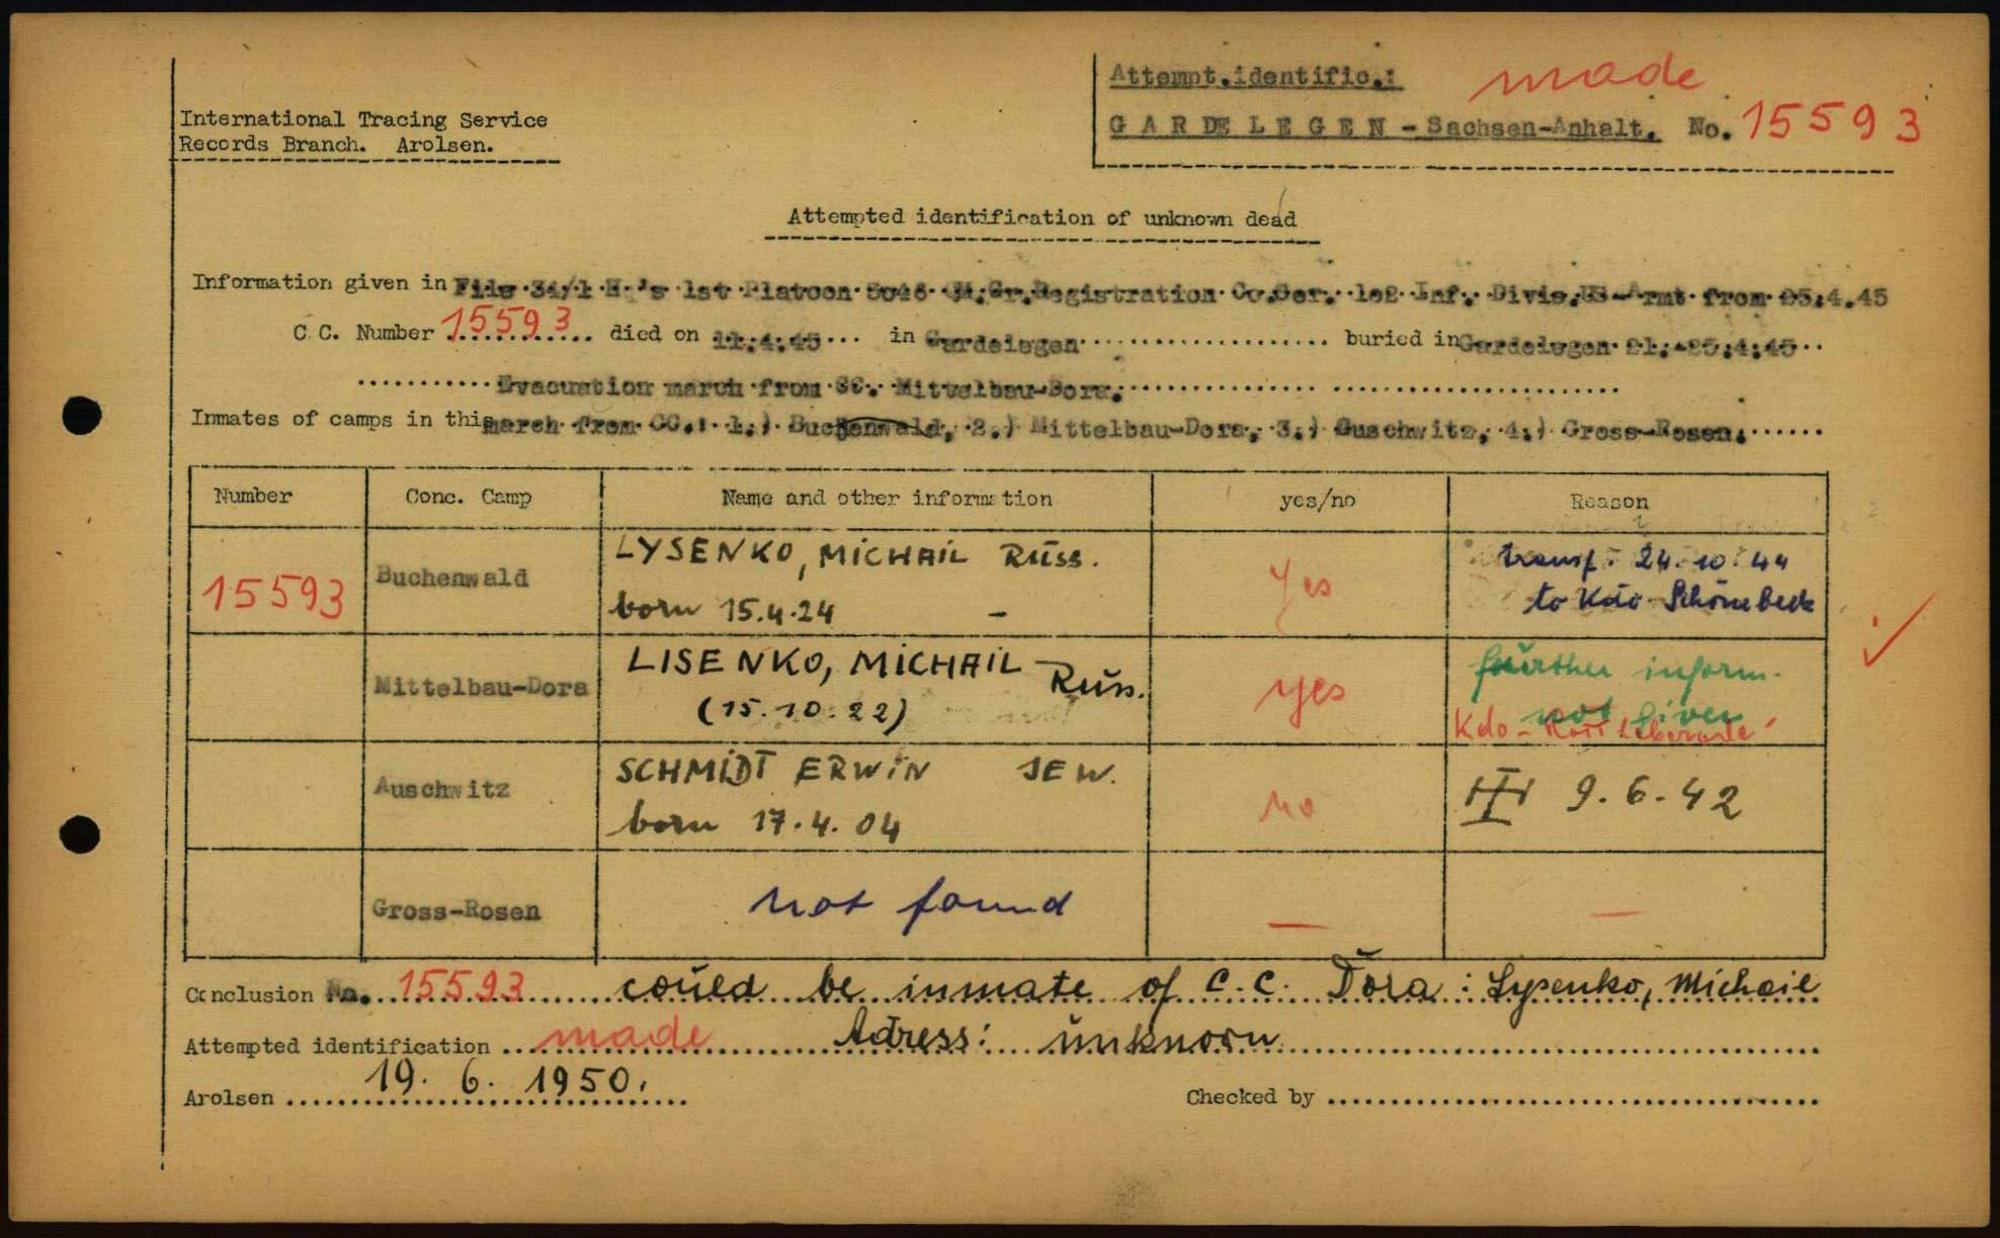 Attempt.identific.: made
International Tracing Service
Records Branch. Arolsen.
GARDELEGEN - Sachsen-Anhalt. No. 15593
Attempted identification of unknown dead
Information given in File 34/1 H.'s 1st Platoon 3046 Gr.Registration Co.Ser. 102 Inf. Divis.US-Armt from 25.4.45
C.C. Number 15593 died on 11.4.45 in Gardelegen buried in Gardelegen 21.-25.4.45
Evacuation march from CC. Mittelbau-Dora.
Inmates of camps in this march from CC.: 1.) Buchenwald, 2.) Mittelbau-Dora, 3.) Auschwitz, 4.) Gross-Rosen.
Number Conc. Camp Name and other information yes/no Reason
15593 Buchenwald LYSENKO, MICHAIL Russ. yes transf. 24.10.44
born 15.4.24 - to Kdo Schönebeck
Mittelbau-Dora LISENKO, MICHAIL Russ. yes further inform.
(15.10.22) not given
Kdo -
Auschwitz SCHMIDT ERWIN JEW. no 9.6.42
born 17.4.04
Gross-Rosen not found — —
Conclusion No. 15593 could be inmate of C.C. Dora: Lysenko, Michail
Attempted identification made Adress: unknorn
Arolsen 19. 6. 1950. Checked by